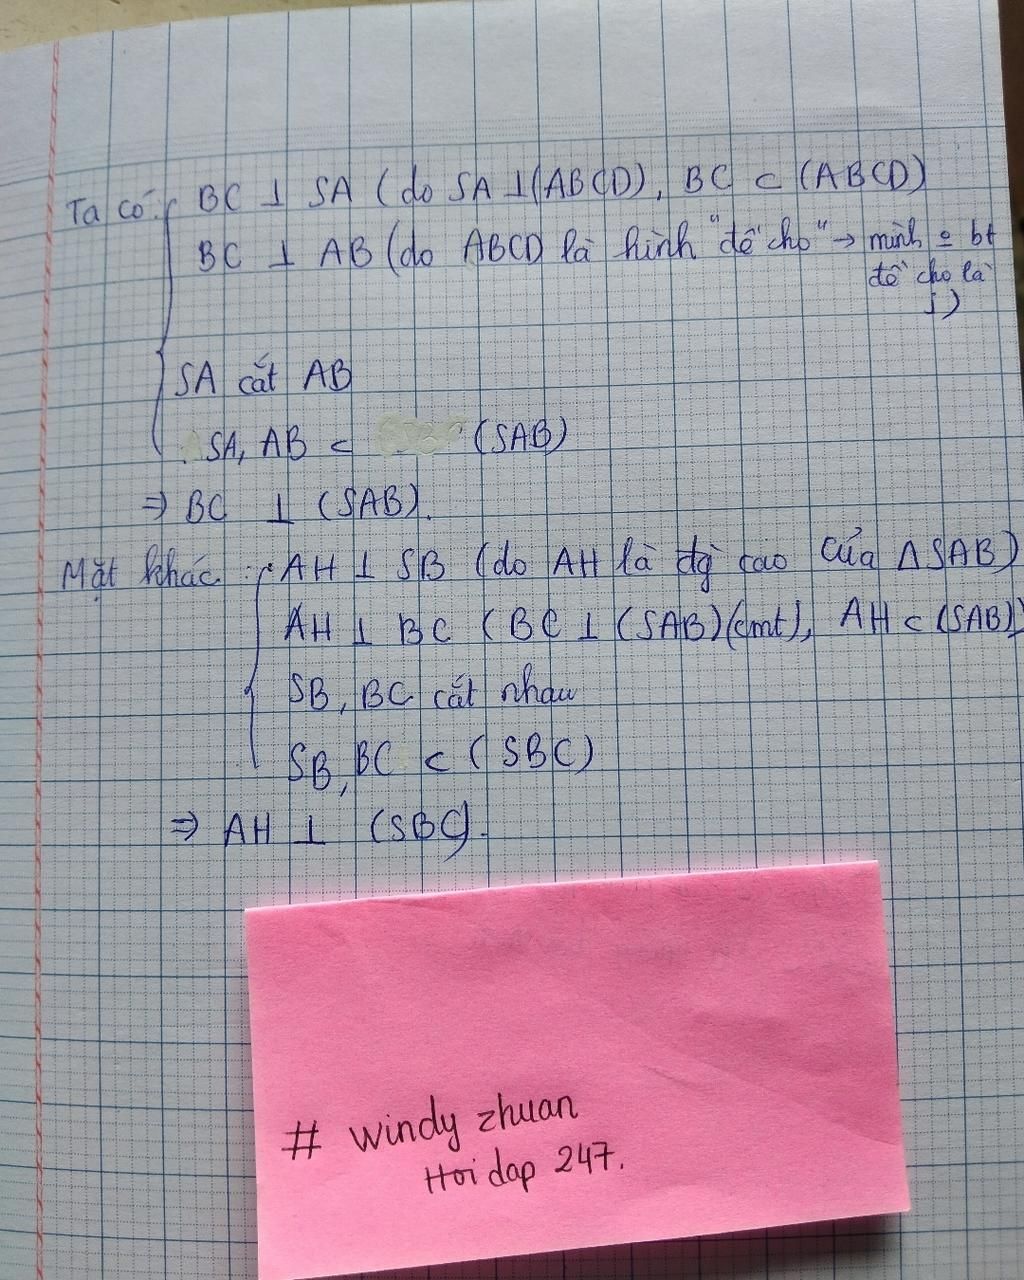 Ta có: BC ⊥ SA (do SA ⊥ (ABCD), BC ⊂ (ABCD)
BC ⊥ AB (do ABCD là hình "đề cho" → mình o bt
đề cho là
j)
SA cắt AB
SA, AB ⊂ (SAB)
⇒ BC ⊥ (SAB).
Mặt khác: AH ⊥ SB (do AH là đg cao của ΔSAB)
AH ⊥ BC (BC ⊥ (SAB)(cmt), AH ⊂ (SAB))
SB, BC cắt nhau
SB, BC ⊂ (SBC)
⇒ AH ⊥ (SBC).
# windy zhuan
Hoi dap 247.